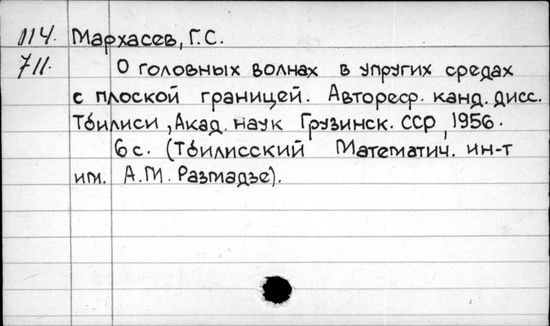 114. Мархасев, Г.С.
711. О головных волнах в упругих средах
с плоской границей. Автореф. канд. дисс.
Тбилиси, Акад. наук Грузинск. ССР, 1956.
6 с. (Тбилисский Математич. ин-т
им. А.М. Размадзе).